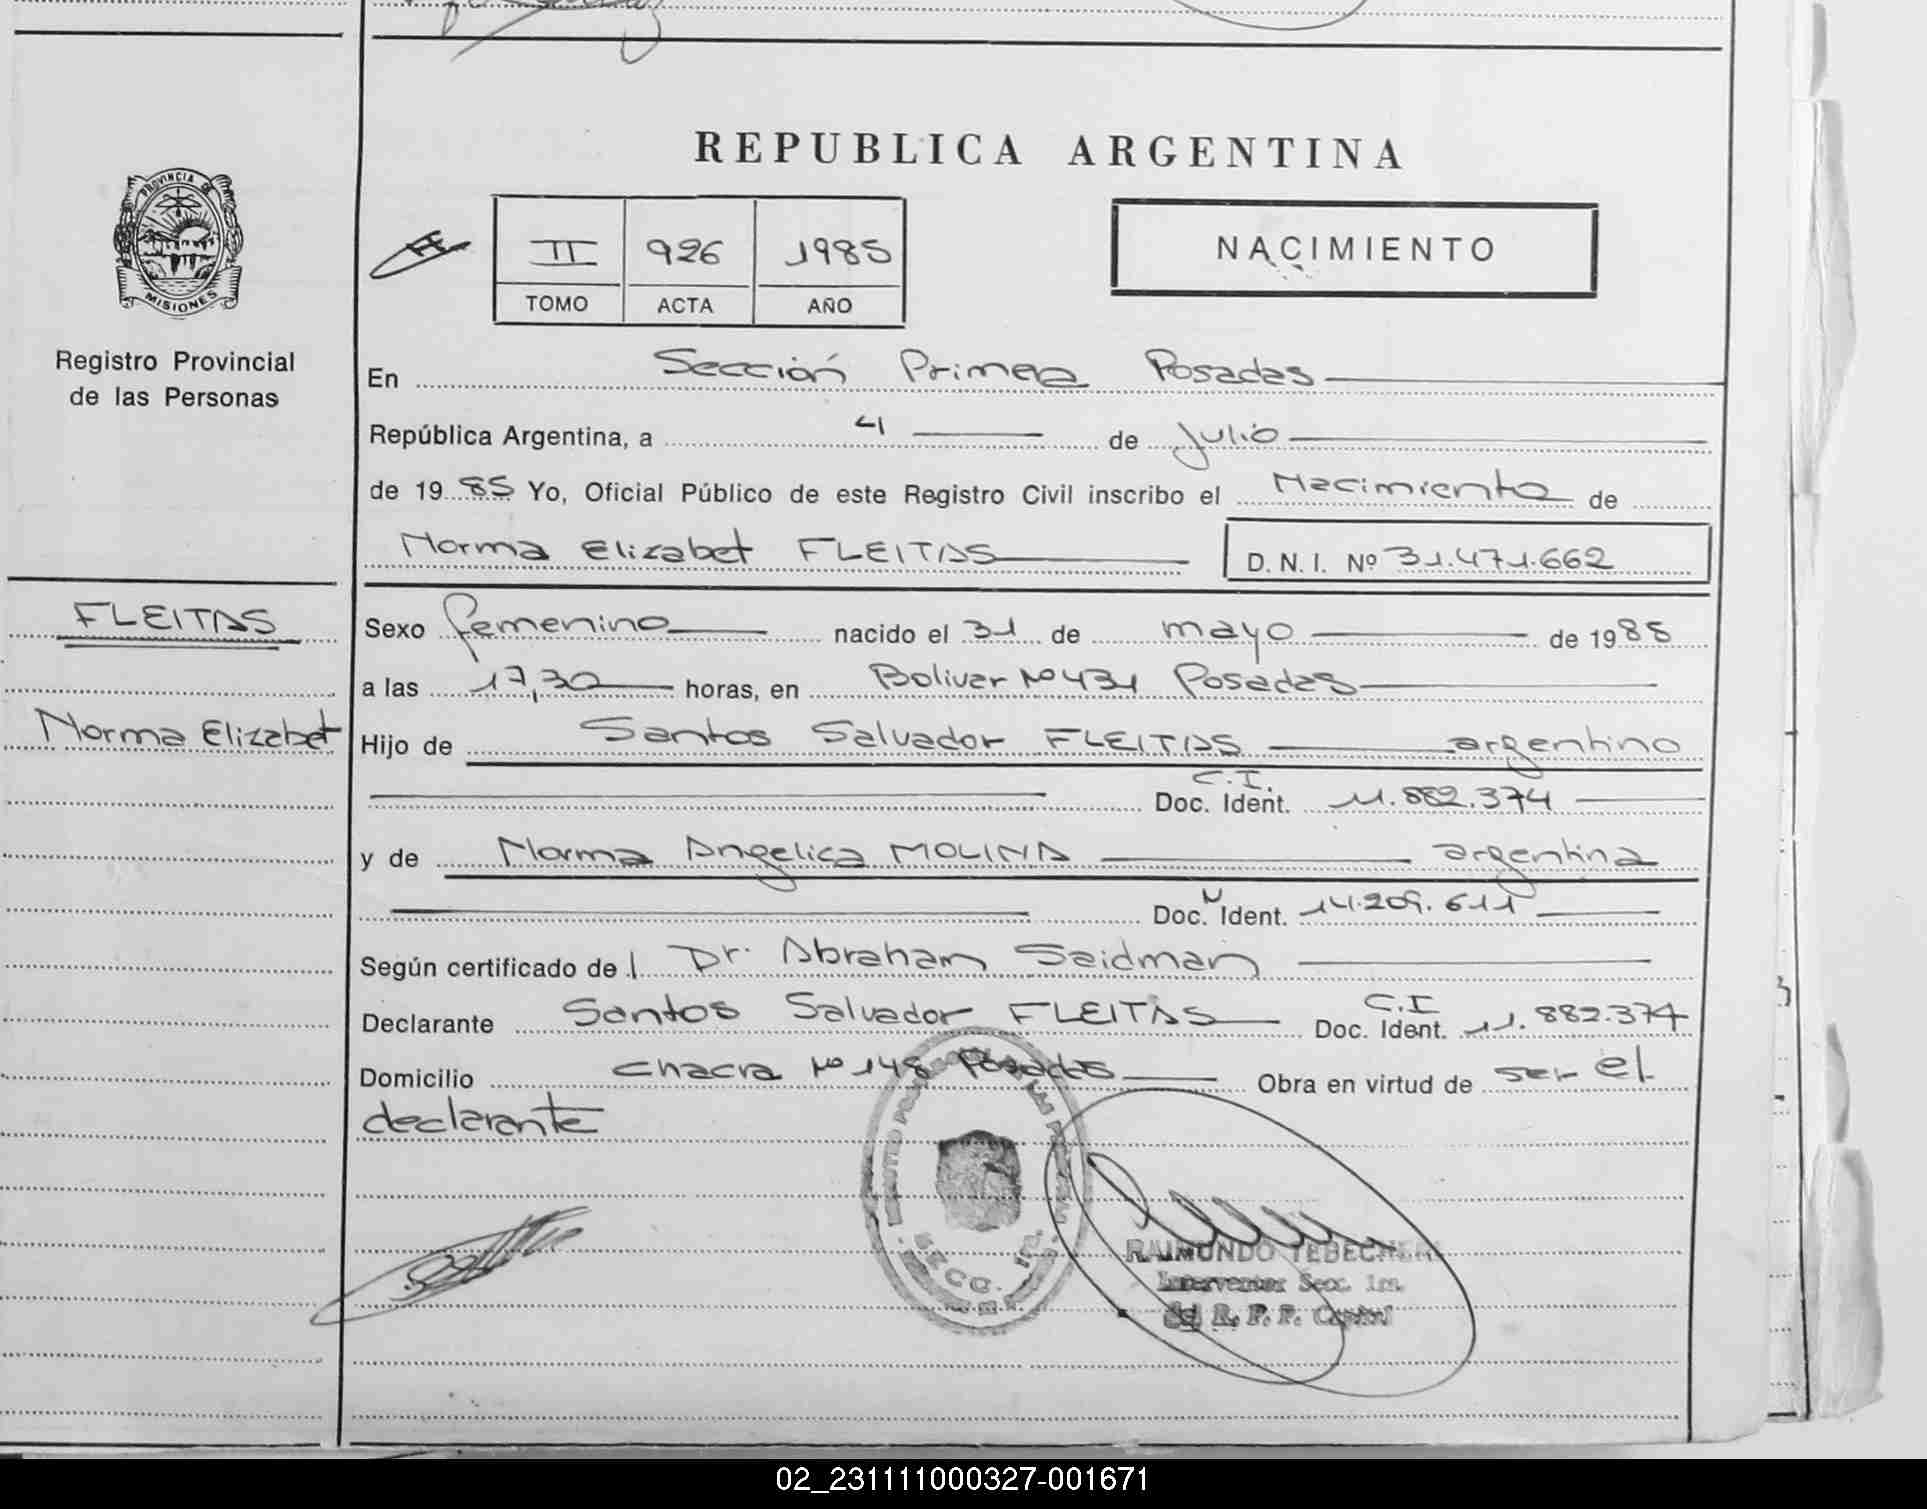 REPUBLICA ARGENTINA
PROVINCIA DE
MISIONES
Registro Provincial
de las Personas
II 926 1985
TOMO ACTA AÑO
NACIMIENTO
En Sección Primera Posadas
República Argentina, a 4 de Julio
de 1985 Yo, Oficial Público de este Registro Civil inscribo el Nacimiento de
Norma Elizabet FLEITAS D. N. I. Nº 31.471.662
FLEITAS
Norma Elizabet
Sexo femenino nacido el 31 de mayo de 1985
a las 17,30 horas, en Bolivar Nº 431 Posadas
Hijo de Santos Salvador FLEITAS argentino
C.I.
Doc. Ident. 11.882.374
y de Norma Angelica MOLINA argentina
Doc. Ident. 14.209.611
Según certificado de l Dr. Abraham Saidman
Declarante Santos Salvador FLEITAS C.I Doc. Ident. 11.882.374
Domicilio chacra Nº 148 Posadas Obra en virtud de ser el
declarante
SECC. 1ra.
RAIMUNDO
Interventor Secc. 1ra.
del R. P. P. Capital
02_231111000327-001671